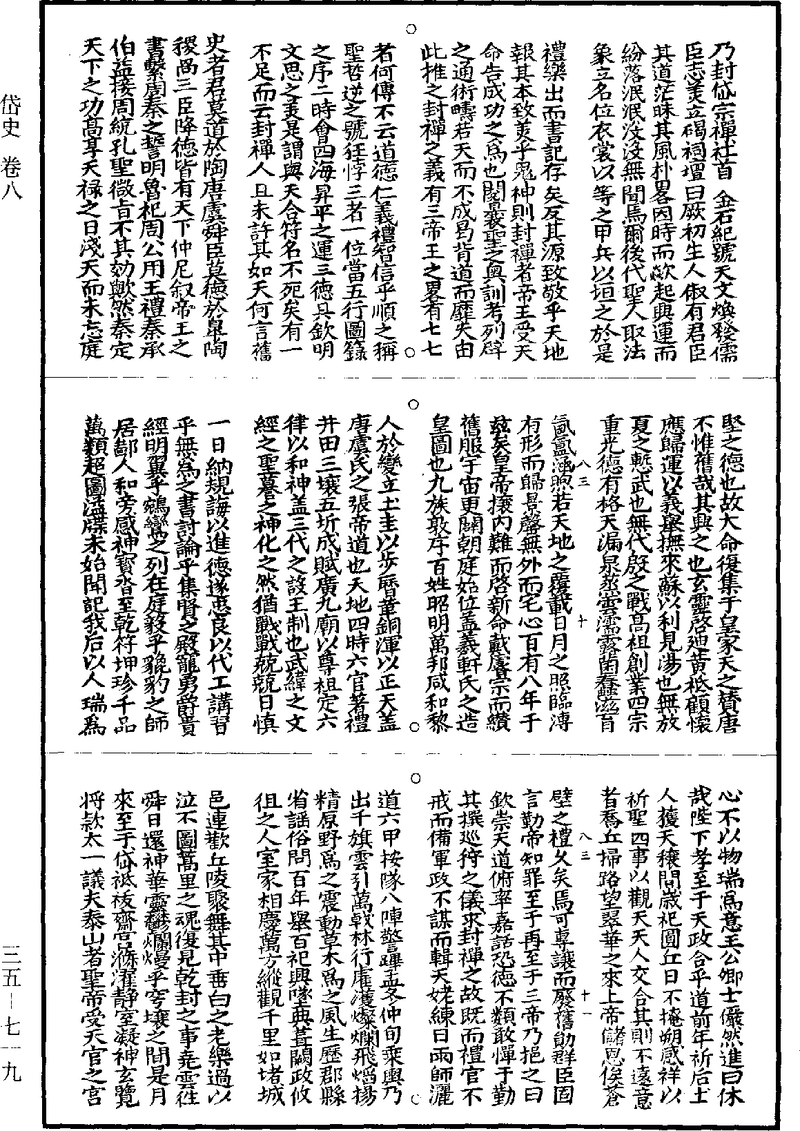 岱史 卷八
乃封岱宗禪社首 金石紀號天文煥發儒
臣志美立碣祠壇曰厥初生人俶有君臣
其道茫昧其風朴畧因時而欻起與運而
紛落泯泯沒沒無聞焉爾後代聖人取法
象立名位衣裳以等之甲兵以垣之於是
禮樂出而書記存矣反其源致敬乎天地
報其本致美乎鬼神則封禪者帝王受天
命告成功之為也閱曩聖之奧訓考列辟
之通術疇若天而不成曷背道而靡失由
此推之封禪之義有三帝王之畧有七七
者何傳不云道德仁義禮智信乎順之稱
聖哲逆之號狂悖三者一位當五行圖籙
之序二時會四海昇平之運三德具欽明
文思之美是謂與天合符名不死矣有一
不足而云封禪人且未許其如天何言舊
史者君莫道於陶唐虞舜臣莫德於皐陶
稷禼三臣降德皆有天下仲尼叙帝王之
書繫周秦之誓明魯祀周公用王禮秦承
伯益接周統孔聖微旨不其効歟然秦定
天下之功高享天祿之日淺天而未忘庭
堅之德也故大命復集于皇家天之賛唐
不惟舊哉其興之也玄靈啓迪黄祗顧懷
應歸運以義舉撫來蘇以利見湯也無放
夏之慙武也無代殷之戰高祖創業四宗
重光德有格天漏泉蒸雲濡露菌蠢滋育
八三 十
氤氳涵煦若天地之覆載日月之照臨溥
有形而歸景罄無外而宅心百有八年于
玆矣皇帝攘内難而啓新命戴睿宗而纘
舊服宇宙更闢朝庭始位盖羲軒氏之造
皇圖也九族敦序百姓昭明萬邦咸和黎
人於變立土圭以步曆革銅渾以正天盖
唐虞氏之張帝道也天地四時六官著禮
井田三壤五圻成賦廣九廟以尊祖定六
律以和神盖三代之設王制也武緯之文
經之聖暮之神化之然猶戰戰兢兢日慎
一日納規誨以進德遂忠良以代工講習
乎無為之書討論乎集賢之殿寵勇爵貴
經明翼乎鵷鸞之列在庭毅乎貔豹之師
居鄙人和旁感神寳沓至乾符坤珍千品
萬類超圖溢牒未始聞記我后以人瑞為
心不以物瑞為意王公卿士儼然進曰休
哉陛下孝至于天政合乎道前年祈后土
人獲天穰間歲祀圓丘日不掩朔感祥以
祈聖四事以觀天天人交合其則不遠意
者喬丘掃路望翠華之來上帝儲恩俟蒼
八三 十一
璧之禮久矣焉可專讓而廢舊勛群臣固
言勤帝知罪至于再至于三帝乃挹之曰
欽崇天道俯率嘉話恐德不類敢憚于勤
其撰巡狩之儀求封禪之故既而禮官不
戒而備軍政不謀而輯天姥練日雨師灑
道六甲按隊八陣警蹕孟冬仲旬乘輿乃
出千旗雲引萬戟林行膺濩燦爛飛焰揚
精原野為之震動草木為之風生歷郡縣
省謡俗問百年舉百祀興墜典葺闕政攸
徂之人室家相慶萬方縱觀千里如堵城
邑連歡丘陵聚舞其中垂白之老樂過以
泣不圖蒿里之魂復見乾封之事堯雲徃
舜日還神華靈鬱爛熳乎穹壤之間是月
來至于岱祗祓齋宫滌濯静室凝神玄覽
將欵太一議夫泰山者聖帝受天官之宫
三五—七一九